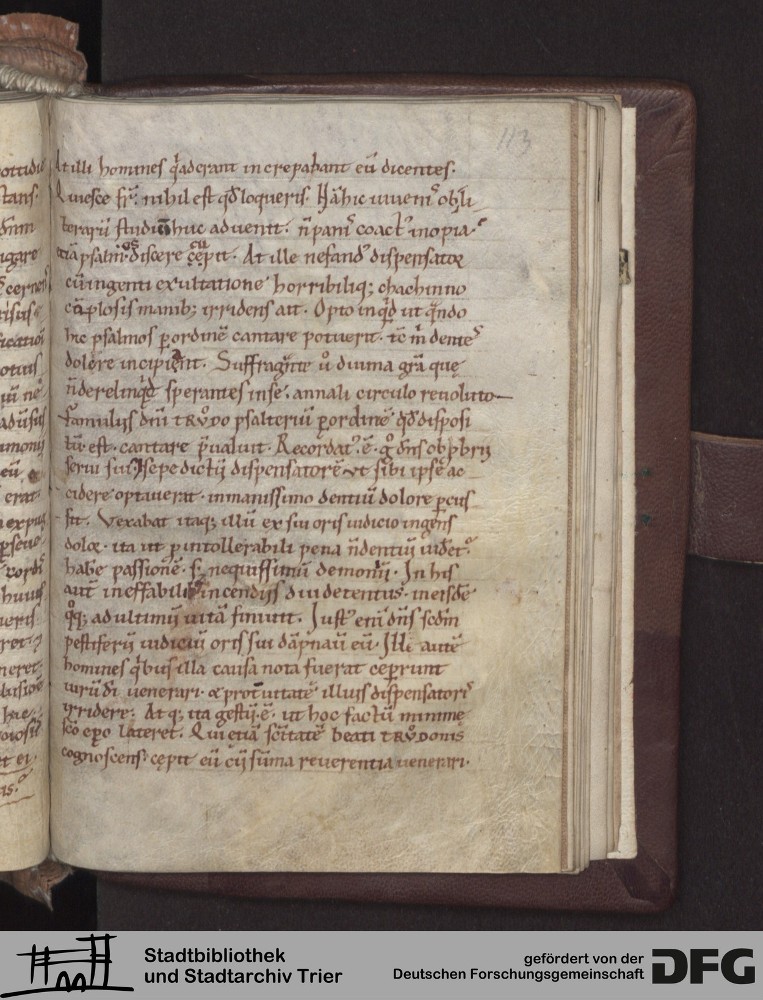 113
At illi homines q̇ aderant increpabant eū dicentes.
Quiesce fr̄. nihil est qđ loqueris. Nā hic iuueniˀ obli
terarū studiū huc aduenit. n̄ paniˀ coactˀ inopia.
etiā psalmos discere cępit. At ille nefandˀ dispensator
cū ingenti exultatione horribiliq; chachinno
cōplosis manib; irridens ait. Opto inq̇d ut q̄ndo
hic psalmos p ordinē cantare potuerit. tc̄ m̄ denteˢ
dolere incipient. Suffragante ů diuina gr̄a quę
n̄ derelinq̇d sperantes in se. annali circulo reuoluto
famulus dn̄i TRVDO psalteriū p ordinē qđ disposi
tū est. cantare p̄ualuit. Recordatˀ. ē. dn̄s ob pbrū
serui sui. sepe dictū dispensatorē ut sibi ipse ac
cidere optauerat. inmanissimo dentiū dolore pcus
sit. Vexabat itaq; illū ex sui oris iudicio ingens
dolor. ita ut p intollerabili pena n̄ dentiū uidet
habe passionē. s; nequissimū demoniū. In his
aut̄ ineffabilib; incendiis diu detentus. in eisdē
q̊q; ad ultimū uitā finiuit. Iustˀ eni dn̄s scdm
pestiferū iudiciū oris sui dāpnauit eū. Illi autē
homines q̇bus illa causa nota fuerat ceperunt
uirū dī uenerari. & proteruitatē illius dispensatoris
irridere. At q; ita gestū. ē. ut hoc factū minime
sc̄o ep̄o lateret. Qui etiā sc̄itatē beati TRVDONIS
cognoscens. cępit eū cū sūma reuerentia uenerari.
Stadtbibliothek
und Stadtarchiv Trier
gefördert von der
Deutschen Forschungsgemeinschaft
DFG